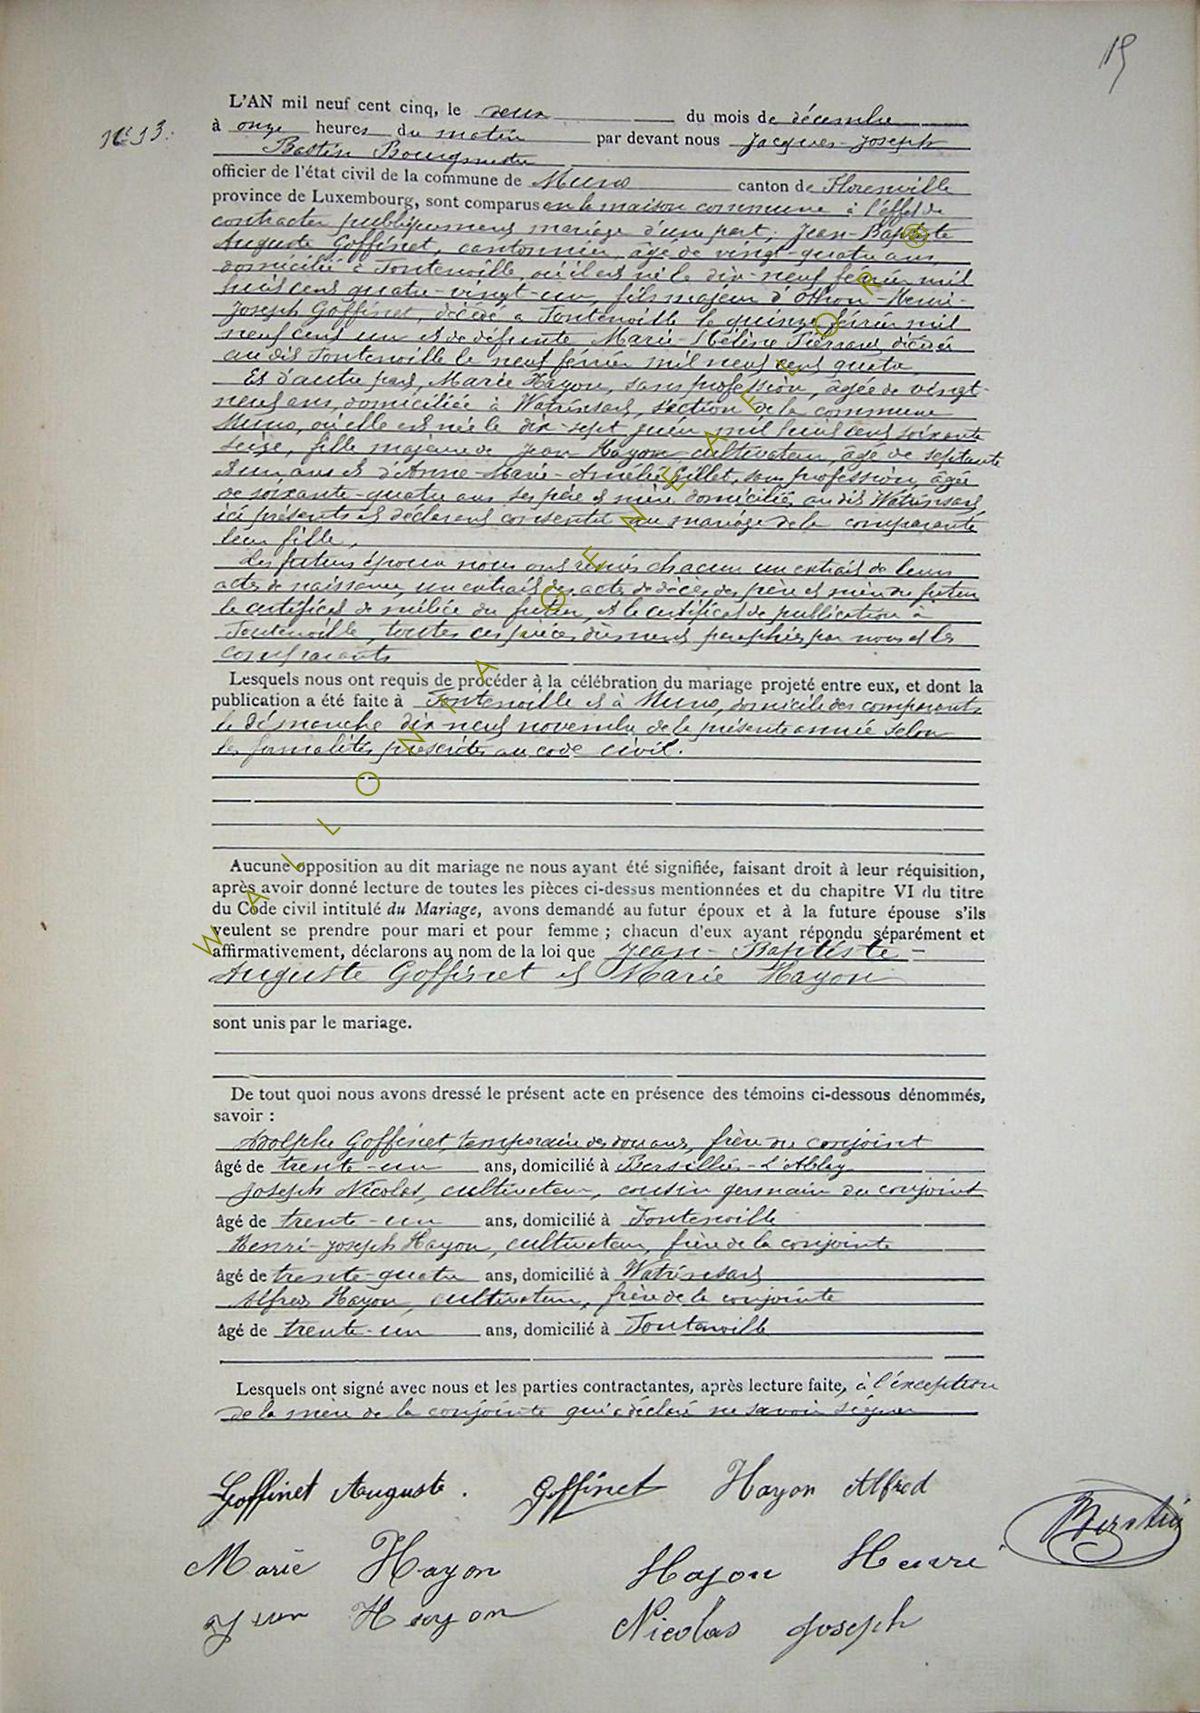 19
N° 13.
L'AN mil neuf cent cinq, le deux du mois de décembre
à onze heures du matin par devant nous Jacques-Joseph
Bastin Bourgmestre
officier de l'état civil de la commune de Muno canton de Florenville
province de Luxembourg, sont comparus en la maison commune à l'effet de
contracter publiquement mariage d'une part, Jean-Baptiste
Auguste Goffinet, cantonnier, âgé de vingt-quatre ans,
domicilié à Fontenoille, où il est né le dix-neuf février mil
huit cent quatre-vingt-un, fils majeur d'Othon-Henri-
Joseph Goffinet, décédé à Fontenoille le quinze février mil
neuf cent un et de défunte Marie-Hélène Pierrard, décédée
au dit Fontenoille le neuf février mil neuf cent quatre
Et d'autre part, Marie Hayon, sans profession, âgée de vingt-
neuf ans, domiciliée à Watrinsart, section de la commune
Muno, où elle est née le dix-sept juin mil huit cent soixante
seize, fille majeure de Jean Hayon cultivateur, âgé de septante
et un ans et d'Anne-Marie-Amélie Gillet, sans profession, âgée
de soixante-quatre ans ses père et mère domiciliés au dit Watrinsart
ici présents et déclarant consentir au mariage de la comparante
leur fille.
Les futurs époux nous ont remis chacun un extrait de leurs
actes de naissance, un extrait des actes de décès des père et mère du futur
le certificat de milice du futur, et le certificat de publication à
Fontenoille, toutes ces pièces dûment paraphées par nous et les
comparants
Lesquels nous ont requis de procéder à la célébration du mariage projeté entre eux, et dont la
publication a été faite à Fontenoille et à Muno, domicile des comparants
le dimanche dix neuf novembre de la présente année selon
les formalités prescrites au code civil.
Aucune opposition au dit mariage ne nous ayant été signifiée, faisant droit à leur réquisition,
après avoir donné lecture de toutes les pièces ci-dessus mentionnées et du chapitre VI du titre
du Code civil intitulé du Mariage, avons demandé au futur époux et à la future épouse s'ils
veulent se prendre pour mari et pour femme ; chacun d'eux ayant répondu séparément et
affirmativement, déclarons au nom de la loi que Jean-Baptiste-
Auguste Goffinet et Marie Hayon
sont unis par le mariage.
De tout quoi nous avons dressé le présent acte en présence des témoins ci-dessous dénommés,
savoir :
Adolphe Goffinet, temporaire des douanes, frère du conjoint
âgé de trente-un ans, domicilié à Bersillies-L'Abbaye
Joseph Nicolas, cultivateur, cousin germain du conjoint
âgé de trente-un ans, domicilié à Fontenoille
Henri-Joseph Hayon, cultivateur, frère de la conjointe
âgé de trente-quatre ans, domicilié à Watrinsart
Alfred Hayon, cultivateur, frère de la conjointe
âgé de trente-un ans, domicilié à Fontenoille
Lesquels ont signé avec nous et les parties contractantes, après lecture faite, à l'exception
de la mère de la conjointe qui a déclaré ne savoir signer
Goffinet Auguste. Goffinet Hayon Alfred
Marie Hayon Hayon Henri
Jean Hayon Nicolas Joseph
Bastin
WALLONIA GENEALOR ®